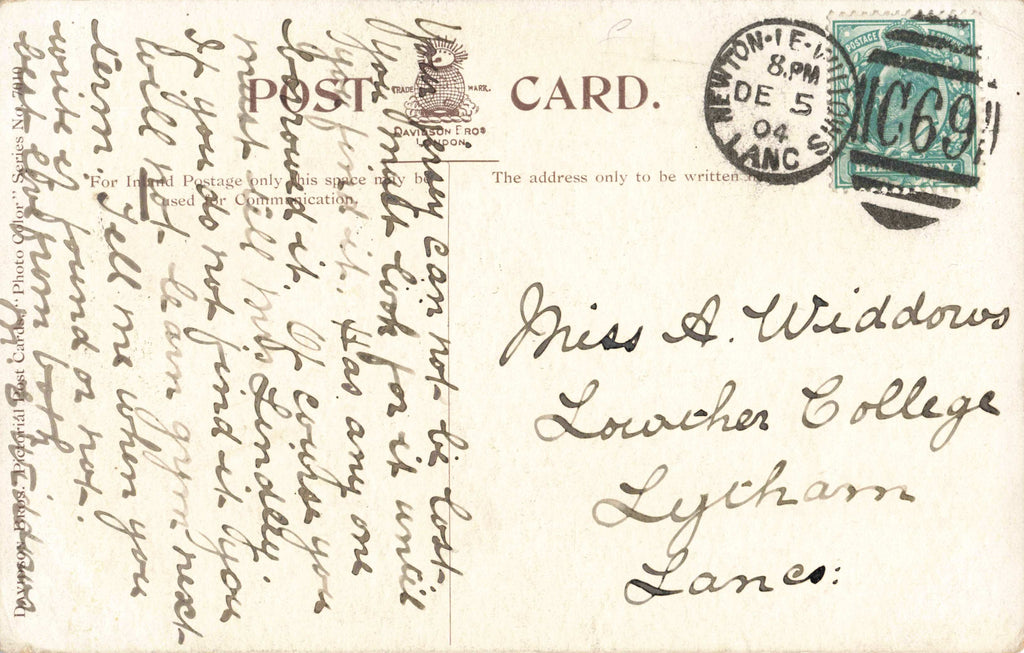 POST CARD.
TRADE MARK.
DAVIDSON BROS
LONDON.
For Inland Postage only this space may be
used for Communication.
The address only to be written
NEWTON-LE-WILLOWS
8.PM
DE 5
04
LANC
C69
POSTAGE
HALFPENNY
can not be lost
You must look for it until
you find it. Has any one
it. Of course you
must tell Miss Lindley.
If you do not find it you
will not learn gym next
term. Tell me when you
write if found or not.
best love from both
Widdows
Miss A. Widdows
Lowther College
Lytham
Lancs:
Davidson Bros.' Pictorial Post Cards. "Photo Color" Series No.